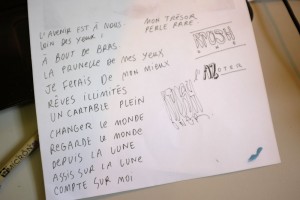 L'AVENIR EST À NOUS
LOIN DES YEUX !
À BOUT DE BRAS
LA PRUNELLE DE MES YEUX
JE FERAIS DE MON MIEUX
RÊVES ILLIMITÉS
UN CARTABLE PLEIN
CHANGER LE MONDE
REGARDE LE MONDE
DEPUIS LA LUNE
ASSIS SUR LA LUNE
COMPTE SUR MOI
MON TRÉSOR
PERLE RARE